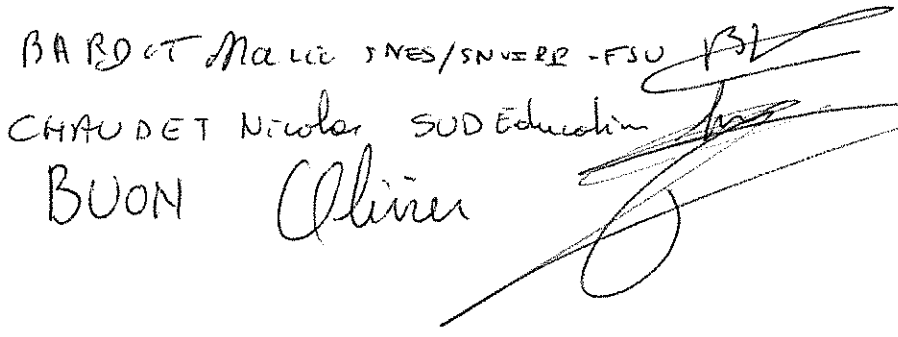 BARDOT Marie SNES/SNUEP-FSU
CHAUDET Nicolas SUD Education
BUON Olivier